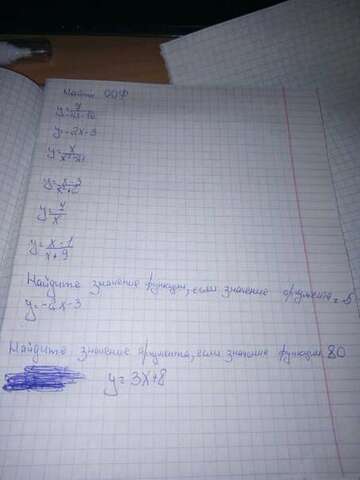 Найти ООФ
y=
y=-2x-3
y=
y=x-3/x²+2
y=7/x
y=x-1/x+9
Найдите значение функции, если значение аргумента = -5
y=-2x-3
Найдите значение аргумента, если значение функции 80
y=3x+8